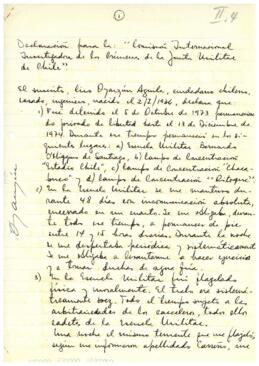 1
II.4
Declaración para la: "Comisión Internacional
Investigadora de los Crímenes de la Junta Militar
de Chile".
El suscrito, Oyarzún Aguila, ciudadano chileno,
casado, ingeniero, nacido el 2/I/1936, declara que
a) Fue detenido el 5 de Octubre de 1973 permaneciendo
privado de libertad hasta el 13 de Diciembre de
1974. Durante ese tiempo permaneció en los si-
guientes lugares: a) Escuela Militar Bernardo
O'Higgins de Santiago, b) Campo de Concentración
"Estadio Chile", c) Campo de Concentración "Chaca-
buco" y d) Campo de Concentración "Ritoque".
En la Escuela Militar se me mantuvo duran-
te 48 días con incomunicación absoluta,
encerrado en un cuarto. Se me obligaba, duran-
te todo ese tiempo, a permanecer de pie
entre 14 y 15 horas diarias. Durante la noche
se me despertaba periódica y sistemáticamente.
Se me obligaba a levantarme a hacer ejercicio
y a tomar duchas de agua fría.
En la Escuela Militar fui flagelado
física y moralmente. El trato era sistemá-
ticamente soez. Todo el tiempo sujeto a las
arbitrariedades de los carceleros, todos ellos
cadetes de la Escuela Militar.
Una noche el mismo teniente que me flageló,
según me informaron apellidado Carreño, me
Oyarzún